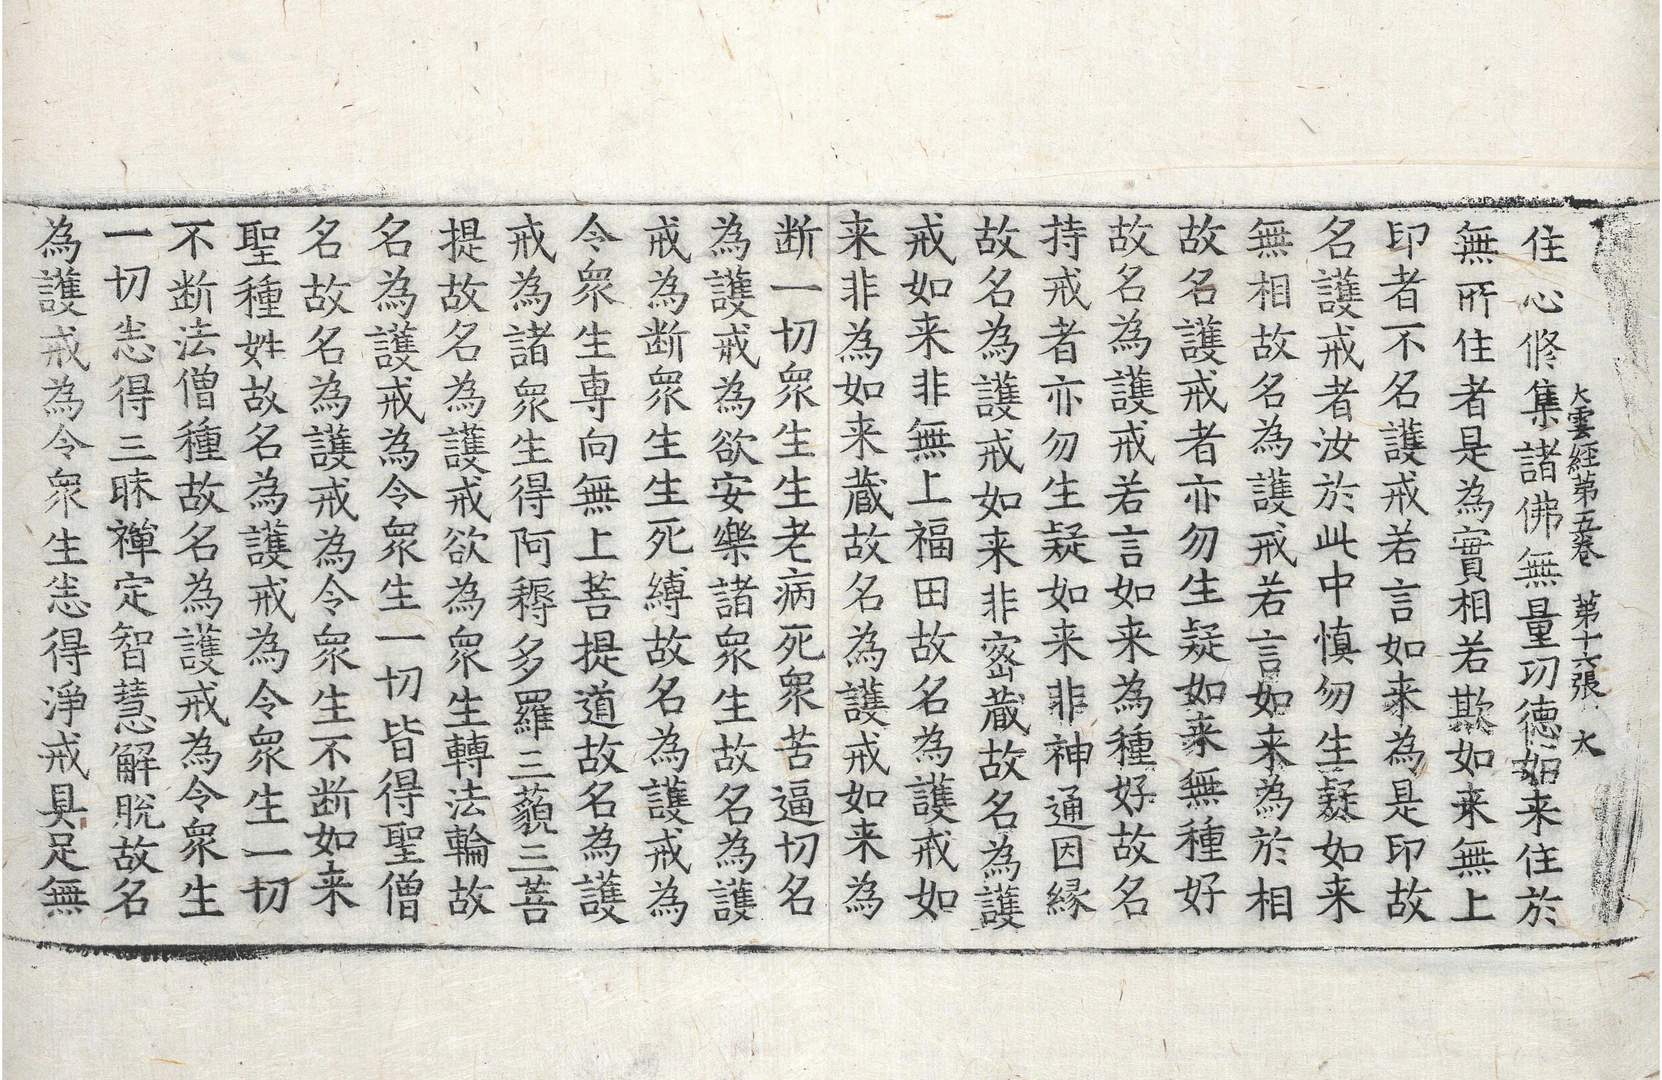 大雲經第五卷 第十六張 大
住心修集諸佛無量功德如来住於
無所住者是為實相若欺如来無上
印者不名護戒若言如来為是印故
名護戒者汝於此中慎勿生疑如来
無相故名為護戒若言如来為於相
故名護戒者亦勿生疑如来無種好
故名為護戒若言如来為種好故名
持戒者亦勿生疑如来非神通因縁
故名為護戒如来非密藏故名為護
戒如来非無上福田故名為護戒如
来非為如来藏故名為護戒如来為
断一切衆生生老病死衆苦逼切名
為護戒為欲安樂諸衆生故名為護
戒為断衆生生死縛故名為護戒為
令衆生専向無上菩提道故名為護
戒為諸衆生得阿耨多羅三藐三菩
提故名為護戒欲為衆生轉法輪故
名為護戒為令衆生一切皆得聖僧
名故名為護戒為令衆生不断如来
聖種姓故名為護戒為令衆生一切
不断法僧種故名為護戒為令衆生
一切悉得三昧禪定智慧解脫故名
為護戒為令衆生悉得淨戒具足無